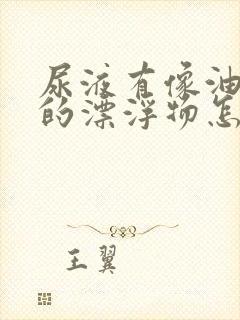 尿液有像油
的漂浮物怎
王翼